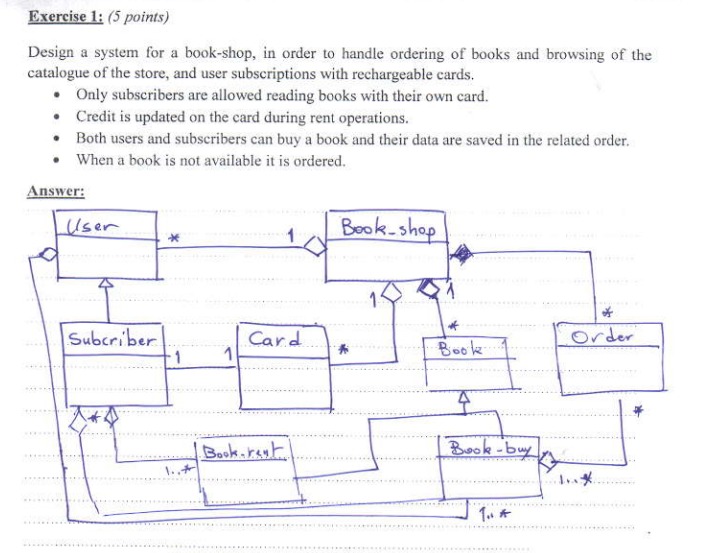 Exercise 1: (5 points)
Design a system for a book-shop, in order to handle ordering of books and browsing of the
catalogue of the store, and user subscriptions with rechargeable cards.
• Only subscribers are allowed reading books with their own card.
• Credit is updated on the card during rent operations.
• Both users and subscribers can buy a book and their data are saved in the related order.
• When a book is not available it is ordered.
Answer:
User
*
1
Book-shop
1
1
*
*
Subcriber
1
1
Card
*
Book
Order
*
*
Book-rent
1..*
Book-buy
1..*
1..*